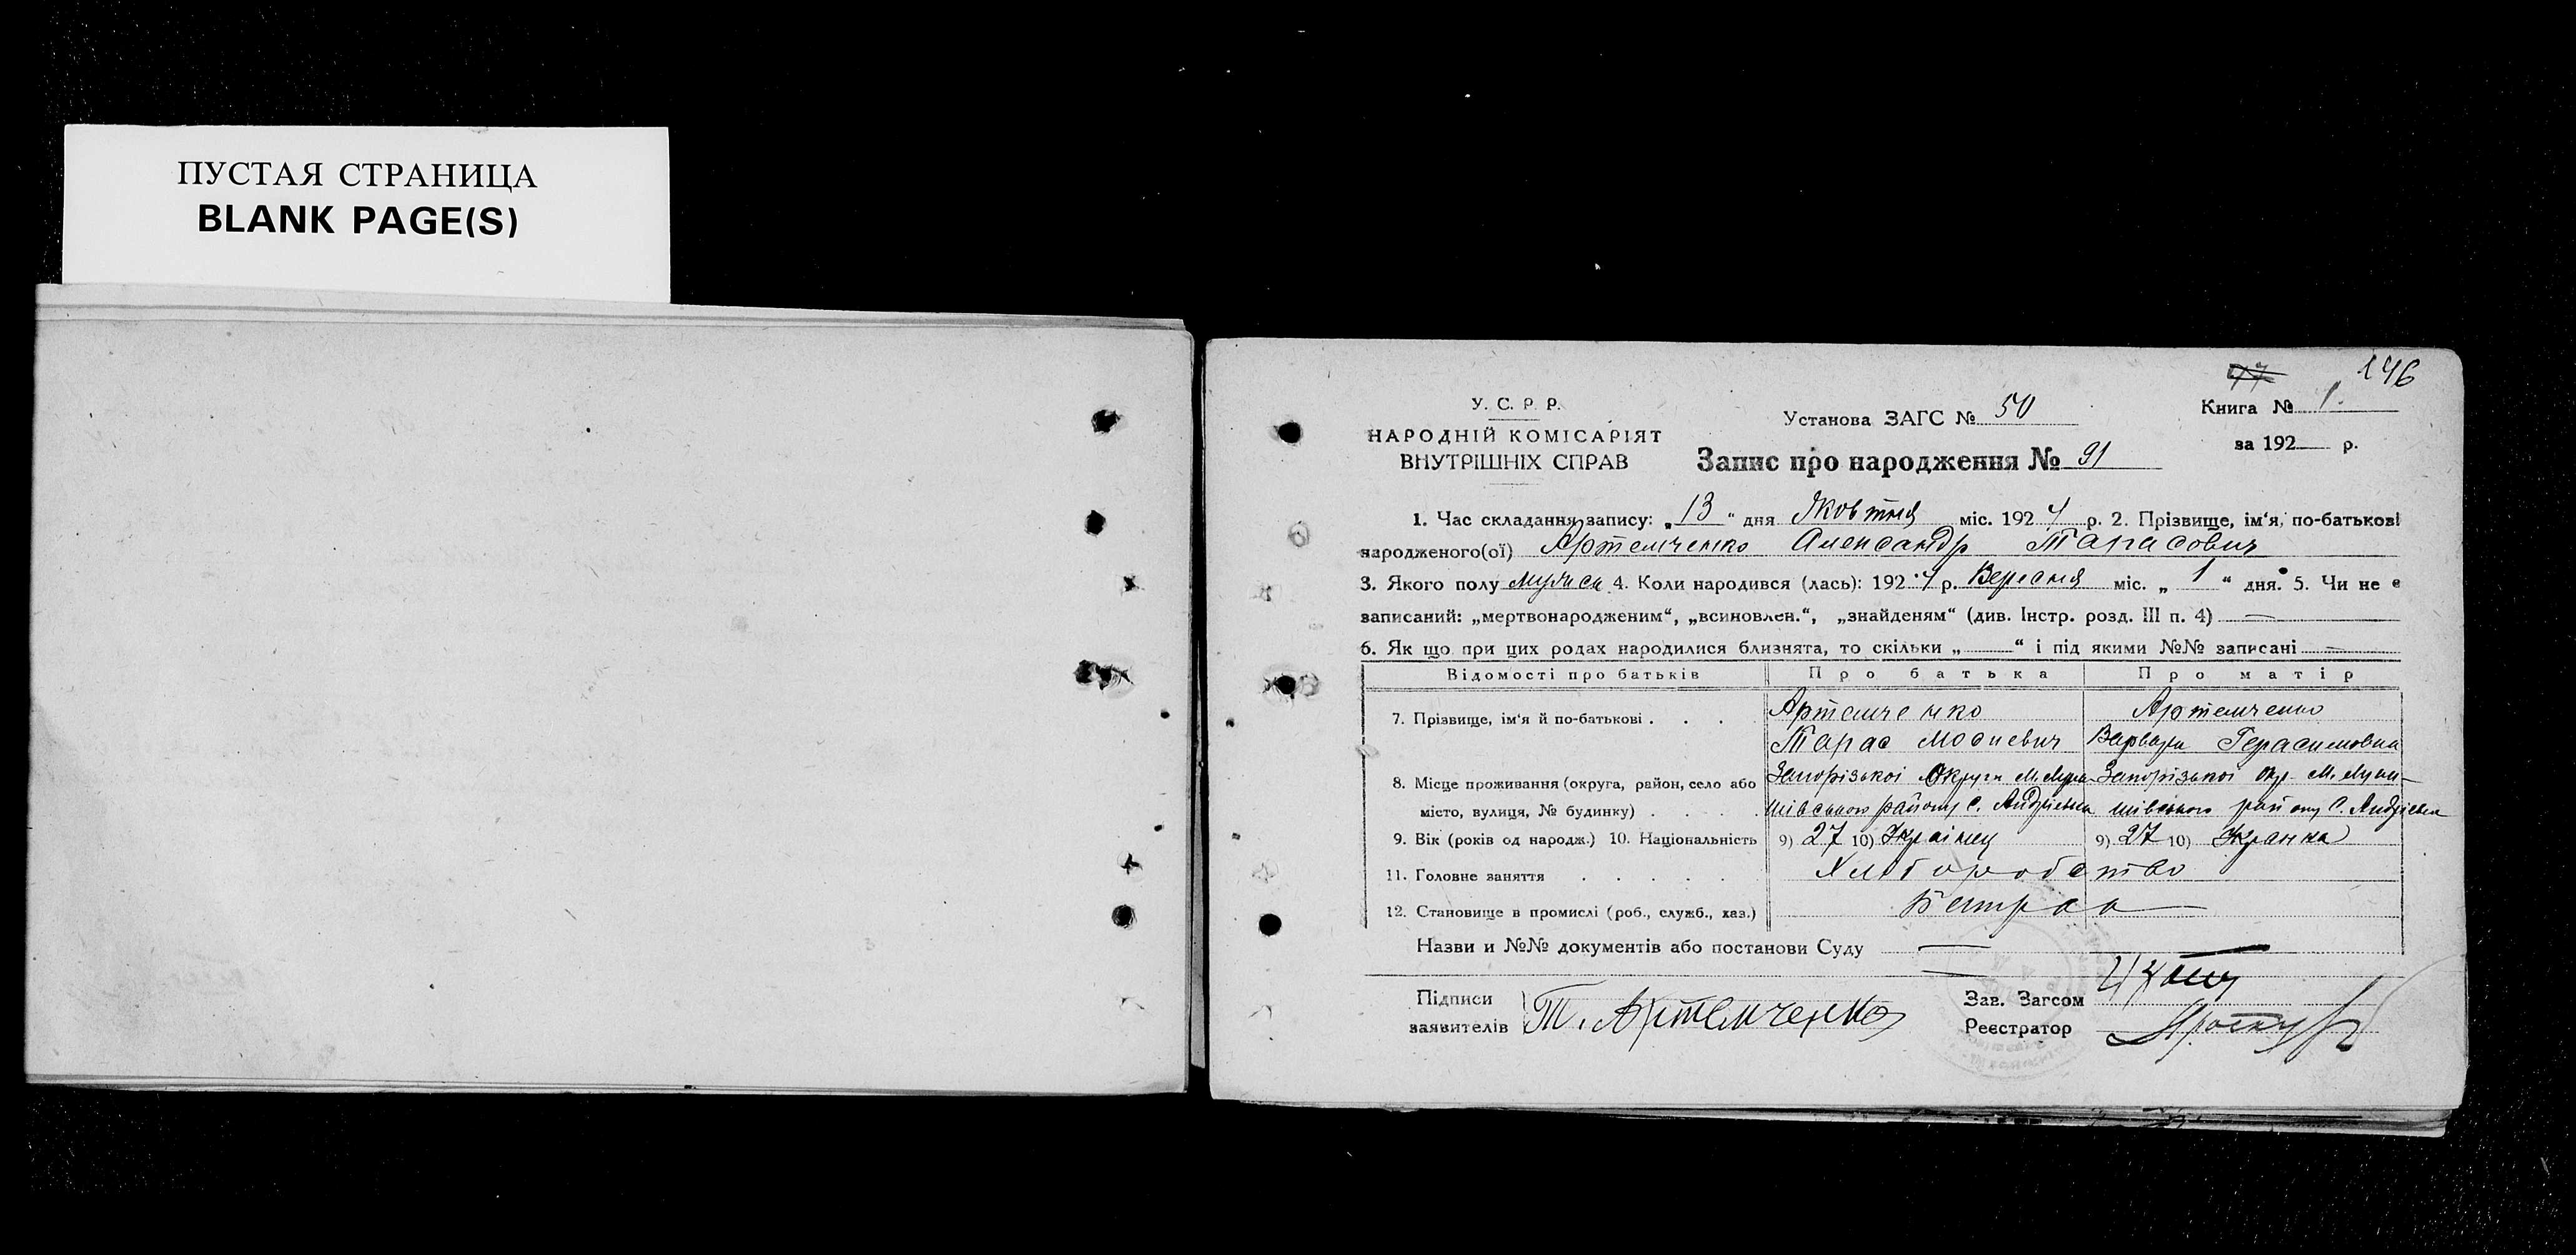 ПУСТАЯ СТРАНИЦА
BLANK PAGE(S)
146
У. С. Р. Р.
НАРОДНІЙ КОМІСАРІЯТ
ВНУТРІШНІХ СПРАВ
Установа ЗАГС № 50
Книга № 1.
за 192 р.
Запис про народження № 91
1. Час складання запису: „13“ дня Жовтня міс. 1924 р. 2. Прізвище, ім‘я, по-батькові
народженого(ої) Артемченко Александр Тарасович
3. Якого полу 4. Коли народився (лась): 1924 р. Вересня міс. „1“ дня. 5. Чи не є
записаний: „мертвонародженим“, „всиновлен.“, „знайденям“ (див. Інстр. розд. III п. 4) —
6. Як що при цих родах народилися близнята, то скільки „—“ і під якими №№ записані —
Відомості про батьків Про батька Про матір
7. Прізвище, ім‘я й по-батькові . . . . Артемченко Артемченко
Тарас Мосиевич Варвара Герасимовна
8. Місце проживання (округа, район, село або Запорізькоі Округи Запорізькоі Окр.
місто, вулиця, № будинку) . . . . . району с. Андрієвка району с. Андрієвка
9. Вік (років од народж.) 10. Національність 9) 27 10) Украінец 9) 27 10)
11. Головне заняття . . . . . Хліборобство
12. Становище в промислі (роб., служб., хаз.)
Назви и №№ документів або постанови Суду —
Підписи
заявителів Т. Артемченко
Зав. Загсом
Реєстратор